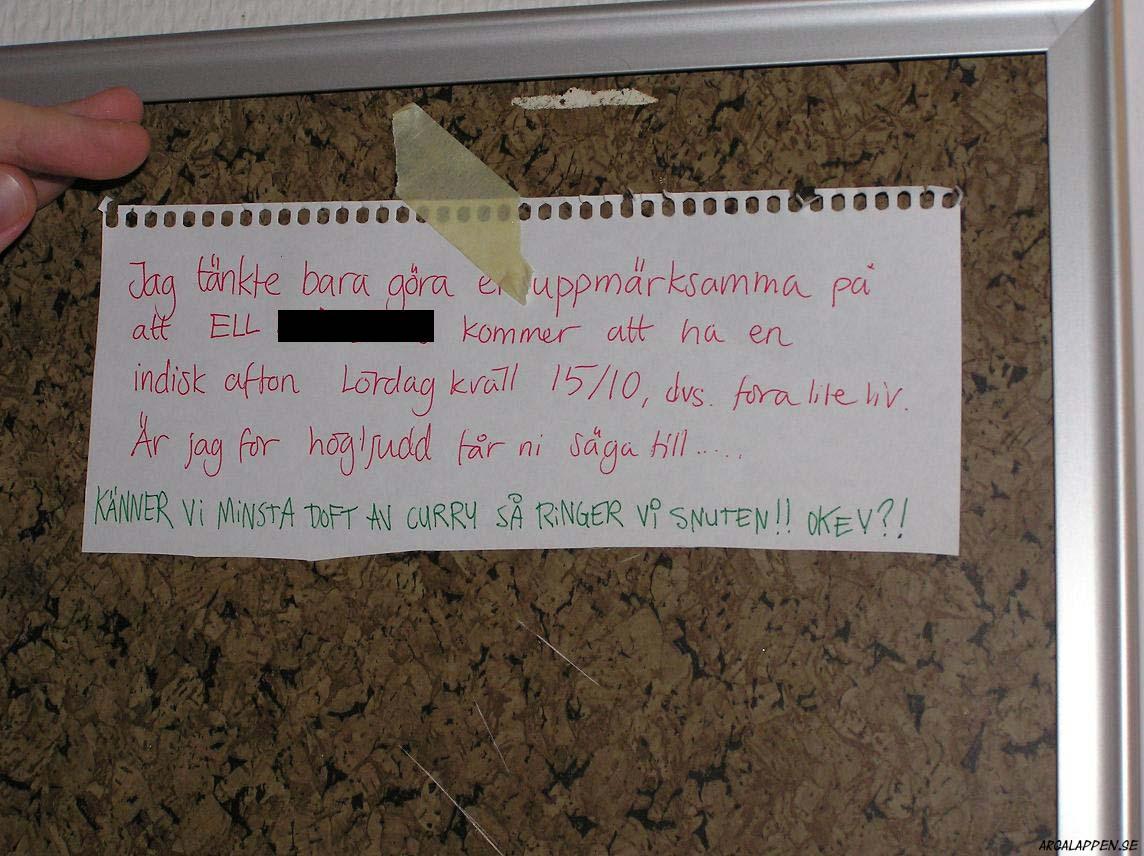 Jag tänkte bara göra er uppmärksamma på
att ELL kommer att ha en
indisk afton Lördag kväll 15/10, dvs. föra lite liv.
Är jag för högljudd får ni säga till.....
KÄNNER Vi MiNSTA DOFT AV CURRY SÅ RiNGER Vi SNUTEN!! OKEY?!
ARGALAPPEN.SE